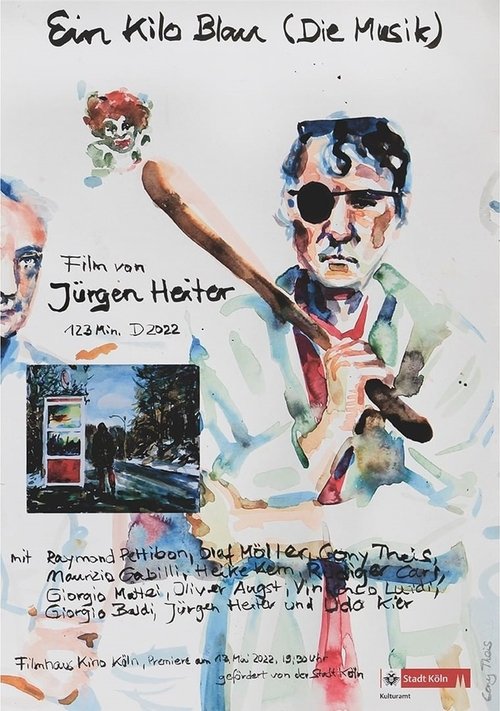 Ein Kilo Blau (Die Musik)
Film von
Jürgen Heiter
123 Min. D 2022
mit Raymond Pettibon, Olaf Möller, Gomy Theis,
Maurizio Gabilli, Heike Kern, Rüdiger Carl,
Giorgio Mattei, Oliver Augst,
Giorgio Baldi, Jürgen Heiter und Udo Kier
Filmhaus Kino Köln, Premiere am 13. Mai 2022, 19,30 Uhr
gefördert von der Stadt Köln
Stadt Köln
Kulturamt
Gomy Theis